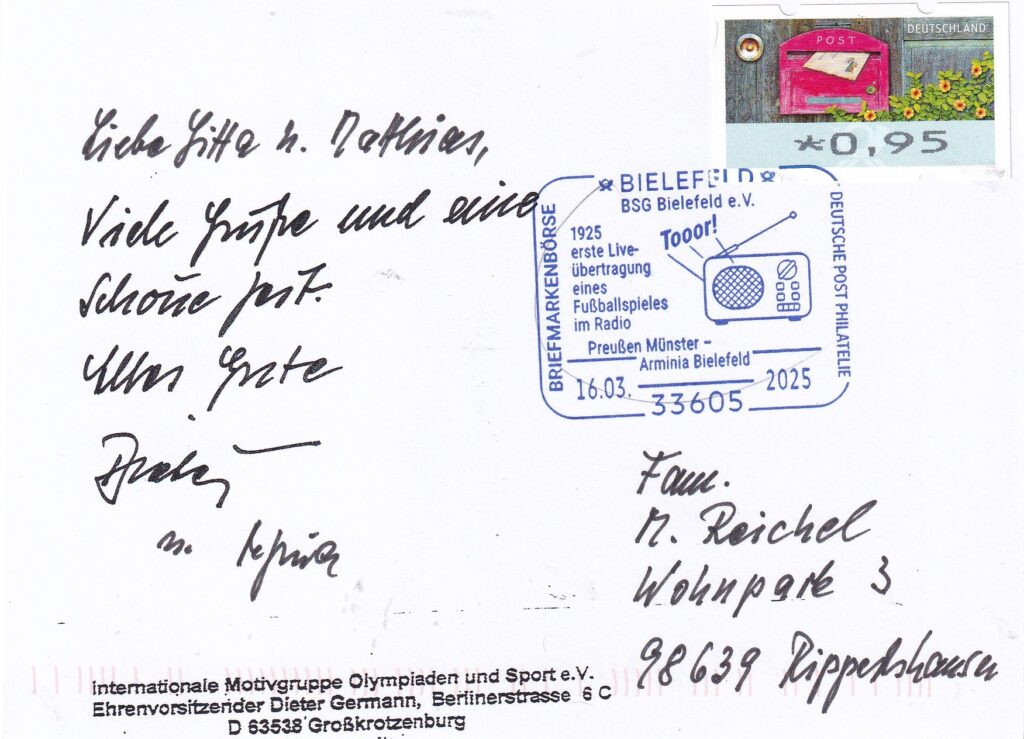 Liebe Gitta u. Mathias,
Viele Grüße und eine
schöne Zeit.
Alles Gute
Dieter
u.
POST
DEUTSCHLAND
*0,95
BIELEFELD
BSG Bielefeld e.V.
BRIEFMARKENBÖRSE
1925
erste Live-
übertragung
eines
Fußballspieles
im Radio
Tooor!
Preußen Münster –
Arminia Bielefeld
16.03. 2025
33605
DEUTSCHE POST PHILATELIE
Fam.
M. Reichel
Wohnpark 3
98639 Rippershausen
Internationale Motivgruppe Olympiaden und Sport e.V.
Ehrenvorsitzender Dieter Germann, Berlinerstrasse 6 C
D 63538 Großkrotzenburg